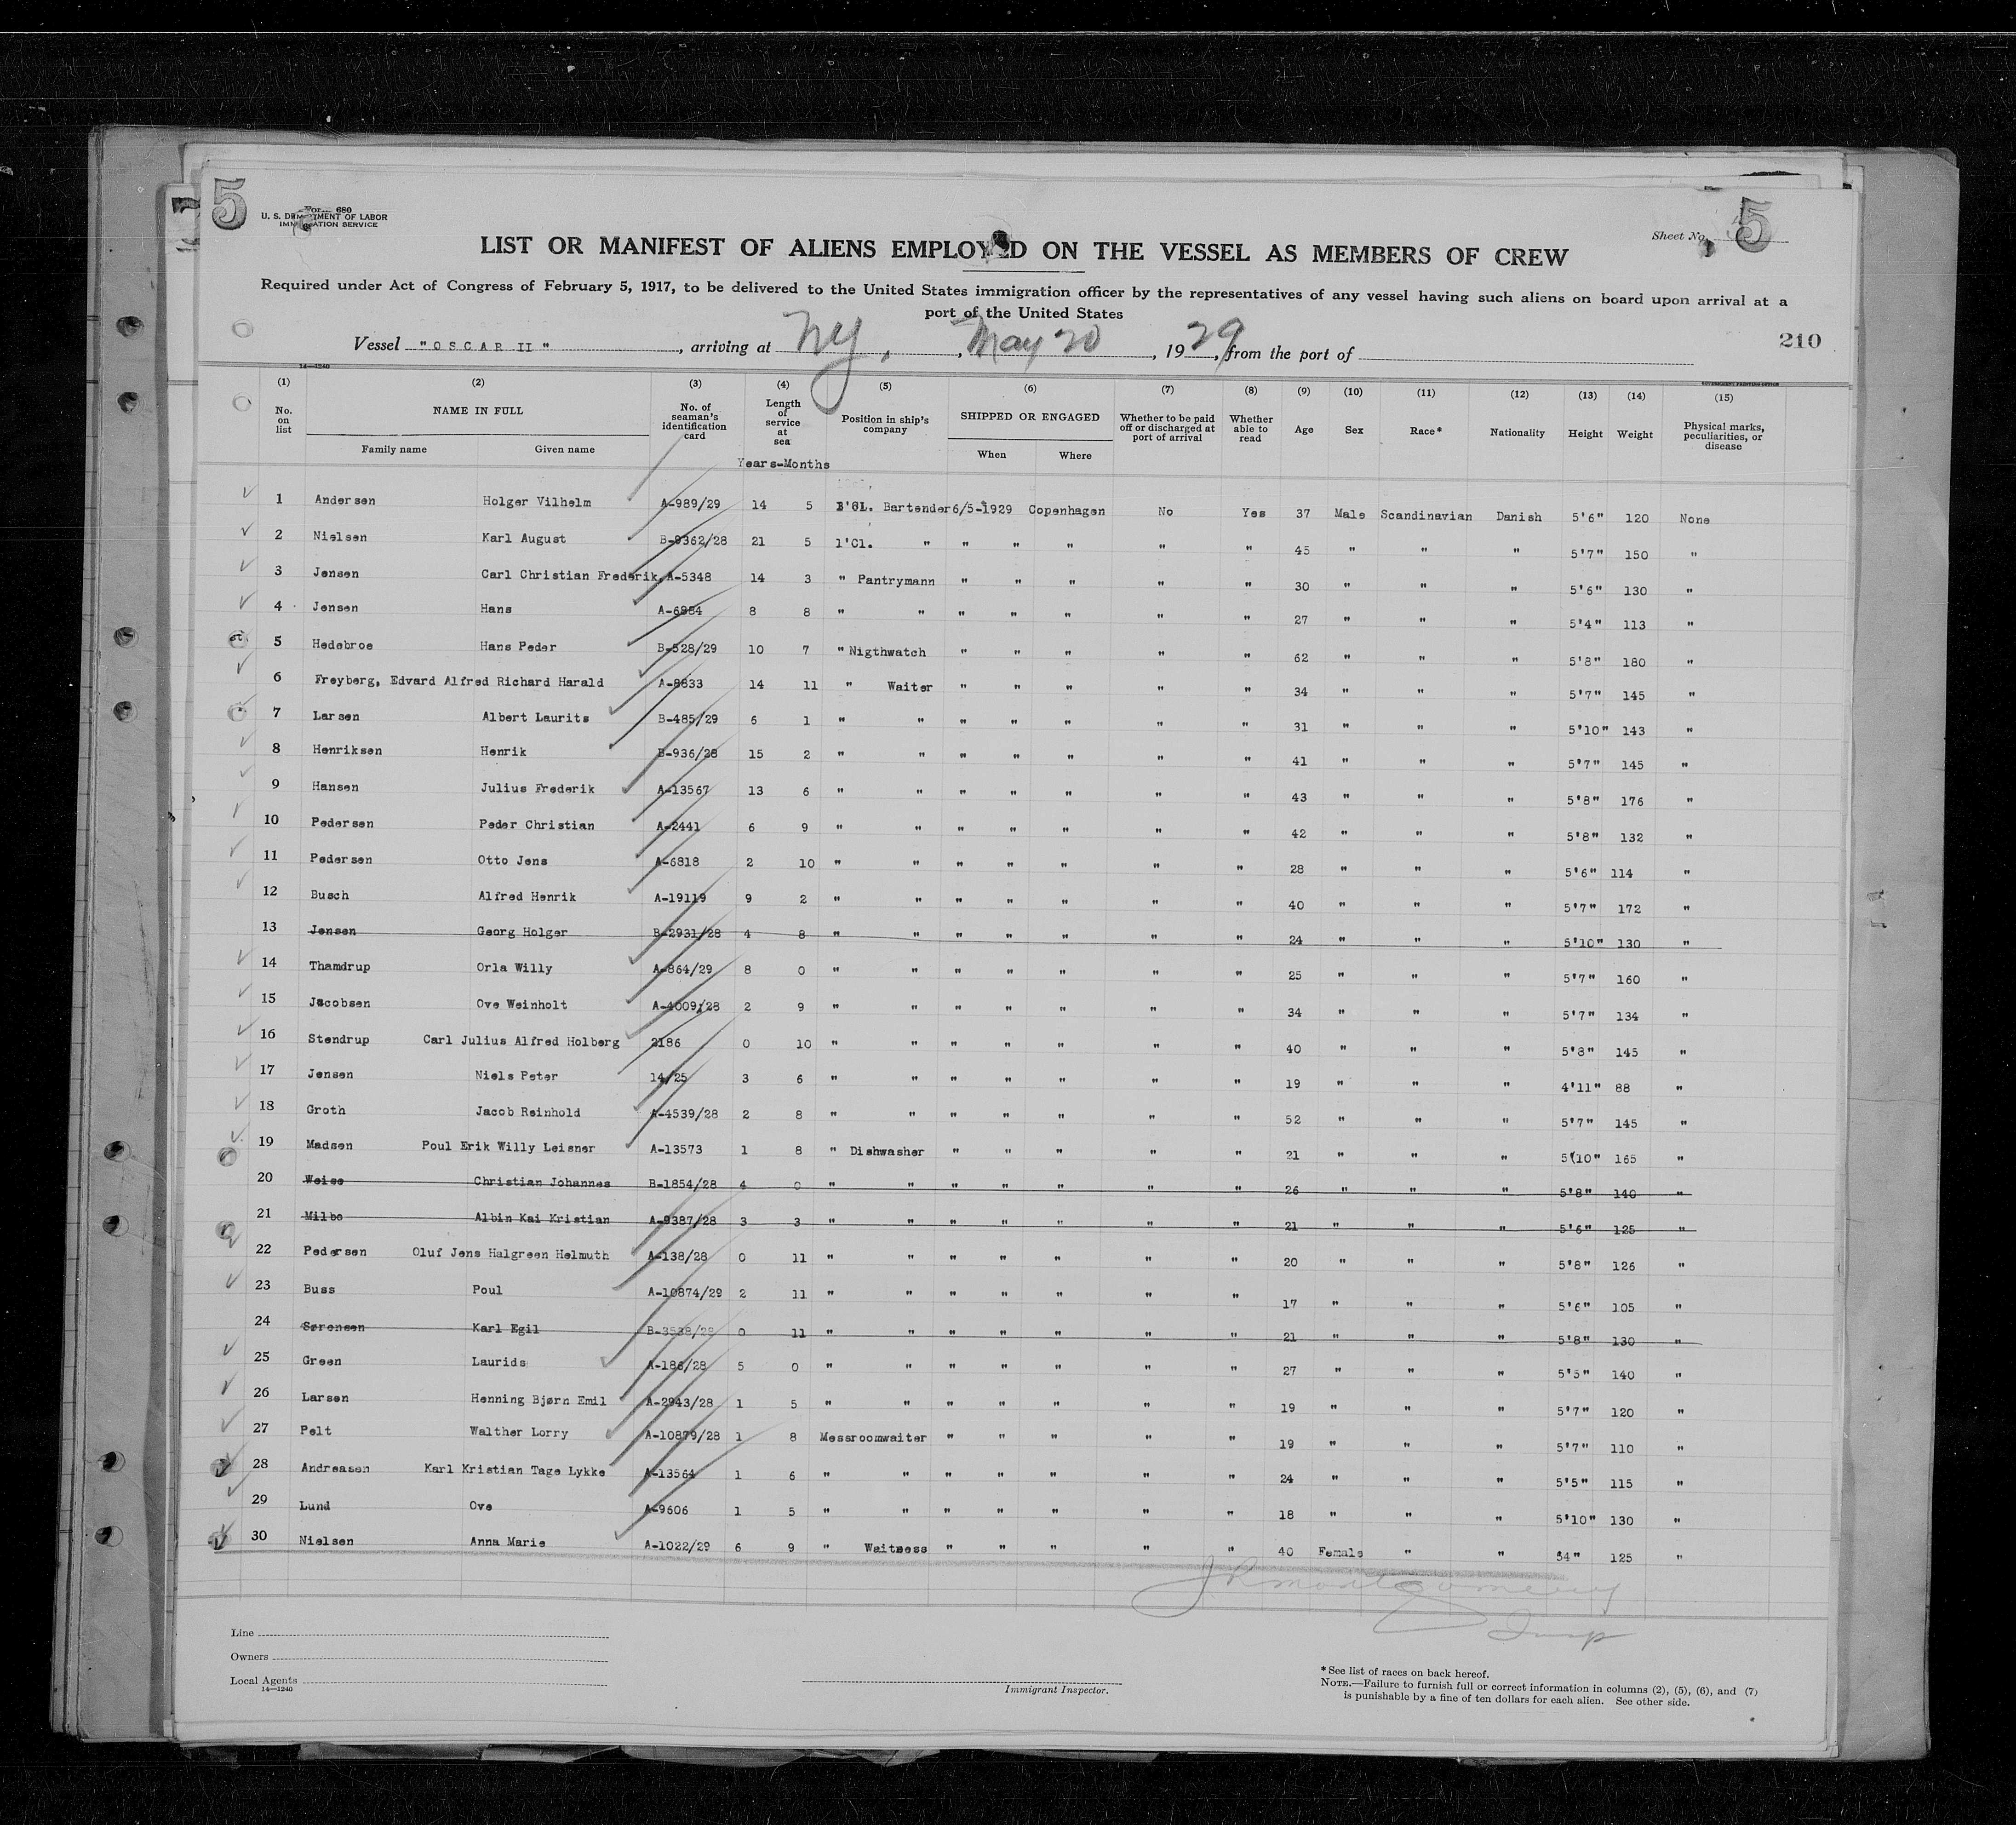 5
Form 680
U. S. DEPARTMENT OF LABOR
IMMIGRATION SERVICE
Sheet No. 5
LIST OR MANIFEST OF ALIENS EMPLOYED ON THE VESSEL AS MEMBERS OF CREW
Required under Act of Congress of February 5, 1917, to be delivered to the United States immigration officer by the representatives of any vessel having such aliens on board upon arrival at a
port of the United States
210
Vessel "OSCAR II", arriving at NY, May 20, 1929, from the port of
14—1240 GOVERNMENT PRINTING OFFICE
(1) (2) (3) (4) (5) (6) (7) (8) (9) (10) (11) (12) (13) (14) (15)
No. on list NAME IN FULL No. of seaman's identification card Length of service at sea Position in ship's company SHIPPED OR ENGAGED Whether to be paid off or discharged at port of arrival Whether able to read Age Sex Race* Nationality Height Weight Physical marks, peculiarities, or disease
Family name Given name When Where
Years-Months
1 Andersen Holger Vilhelm A-989/29 14 5 Bartender 6/5-1929 Copenhagen No Yes 37 Male Scandinavian Danish 5'6" 120 None
2 Nielsen Karl August B-9362/28 21 5 1'Cl. " " " " " " 45 " " " 5'7" 150 "
3 Jensen Carl Christian Frederik, A-5348 14 3 " Pantrymann " " " " " 30 " " " 5'6" 130 "
4 Jensen Hans A-6884 8 8 " " " " " " " 27 " " " 5'4" 113 "
5 Hedebroe Hans Peder B-528/29 10 7 " Nigthwatch " " " " " 62 " " " 5'8" 180 "
6 Freyberg, Edvard Alfred Richard Harald A-8833 14 11 " Waiter " " " " " 34 " " " 5'7" 145 "
7 Larsen Albert Laurits B-485/29 6 1 " " " " " " " 31 " " " 5'10" 143 "
8 Henriksen Henrik B-936/28 15 2 " " " " " " " 41 " " " 5'7" 145 "
9 Hansen Julius Frederik A-13567 13 6 " " " " " " " 43 " " " 5'8" 176 "
10 Pedersen Peder Christian A-2441 6 9 " " " " " " " 42 " " " 5'8" 132 "
11 Pedersen Otto Jens A-6818 2 10 " " " " " " " 28 " " " 5'6" 114 "
12 Busch Alfred Henrik A-19119 9 2 " " " " " " " 40 " " " 5'7" 172 "
13 Jensen Georg Holger B-2931/28 4 8 " " " " " " " 24 " " " 5'10" 130 "
14 Thamdrup Orla Willy A-864/29 8 0 " " " " " " " 25 " " " 5'7" 160 "
15 Jacobsen Ove Weinholt A-4009/28 2 9 " " " " " " " 34 " " " 5'7" 134 "
16 Stendrup Carl Julius Alfred Holberg 2186 0 10 " " " " " " " 40 " " " 5'8" 145 "
17 Jensen Niels Peter 14/25 3 6 " " " " " " " 19 " " " 4'11" 88 "
18 Groth Jacob Reinhold A-4539/28 2 8 " " " " " " " 52 " " " 5'7" 145 "
19 Madsen Poul Erik Willy Leisner A-13573 1 8 " Dishwasher " " " " " 21 " " " 5'10" 165 "
20 Weise Christian Johannes B-1854/28 4 0 " " " " " " " 26 " " " 5'8" 140 "
21 Milbo Albin Kai Kristian A-9387/28 3 3 " " " " " " " 21 " " " 5'6" 125 "
22 Pedersen Oluf Jens Halgreen Helmuth A-138/28 0 11 " " " " " " " 20 " " " 5'8" 126 "
23 Buss Poul A-10874/29 2 11 " " " " " " " 17 " " " 5'6" 105 "
24 Sørensen Karl Egil B-3538/28 0 11 " " " " " " " 21 " " " 5'8" 130 "
25 Green Laurids A-186/28 5 0 " " " " " " " 27 " " " 5'5" 140 "
26 Larsen Henning Bjørn Emil A-2943/28 1 5 " " " " " " " 19 " " " 5'7" 120 "
27 Pelt Walther Lorry A-10879/28 1 8 Messroomwaiter " " " " " 19 " " " 5'7" 110 "
28 Andreasen Karl Kristian Tage Lykke A-13564 1 6 " " " " " " " 24 " " " 5'5" 115 "
29 Lund Ove A-9606 1 5 " " " " " " " 18 " " " 5'10" 130 "
30 Nielsen Anna Marie A-1022/29 6 9 " Waitness " " " " " 40 Female " " 54" 125 "
JR Montgomery
Insp
Line
Owners
Local Agents
14—1240
Immigrant Inspector.
* See list of races on back hereof.
NOTE.—Failure to furnish full or correct information in columns (2), (5), (6), and (7)
is punishable by a fine of ten dollars for each alien. See other side.